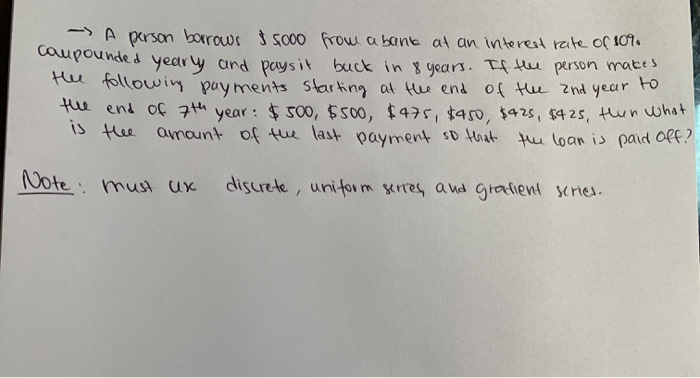 → A person borrows $5000 from a bank at an interest rate of 10%
caupounded yearly and pays it back in 8 years. If the person makes
the following payments starting at the end of the 2nd year to
the end of 7th year: $500, $500, $475, $450, $425, $425, then what
is the amount of the last payment so that the loan is paid off?
Note: must use discrete, uniform series, and gradient series.